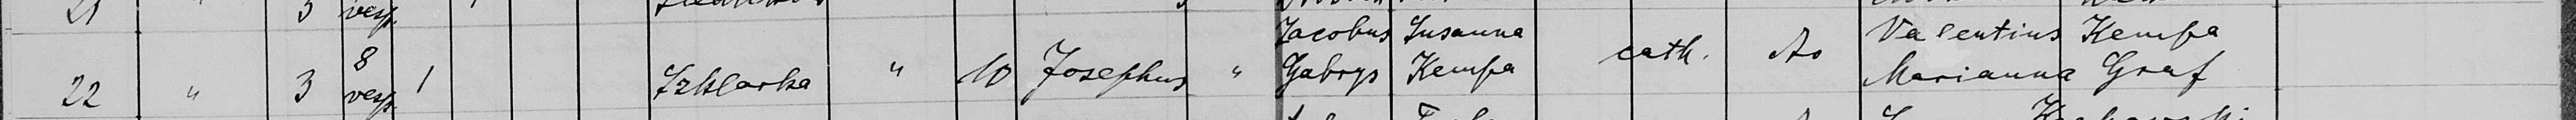 21 " 3 vesp.
Jacobus Susanna Valentius Kempa
22 " 3 8 vesp. 1 Szklarka " 10 Josephus " Gabrys Kempa cath. Ao Marianna Graf